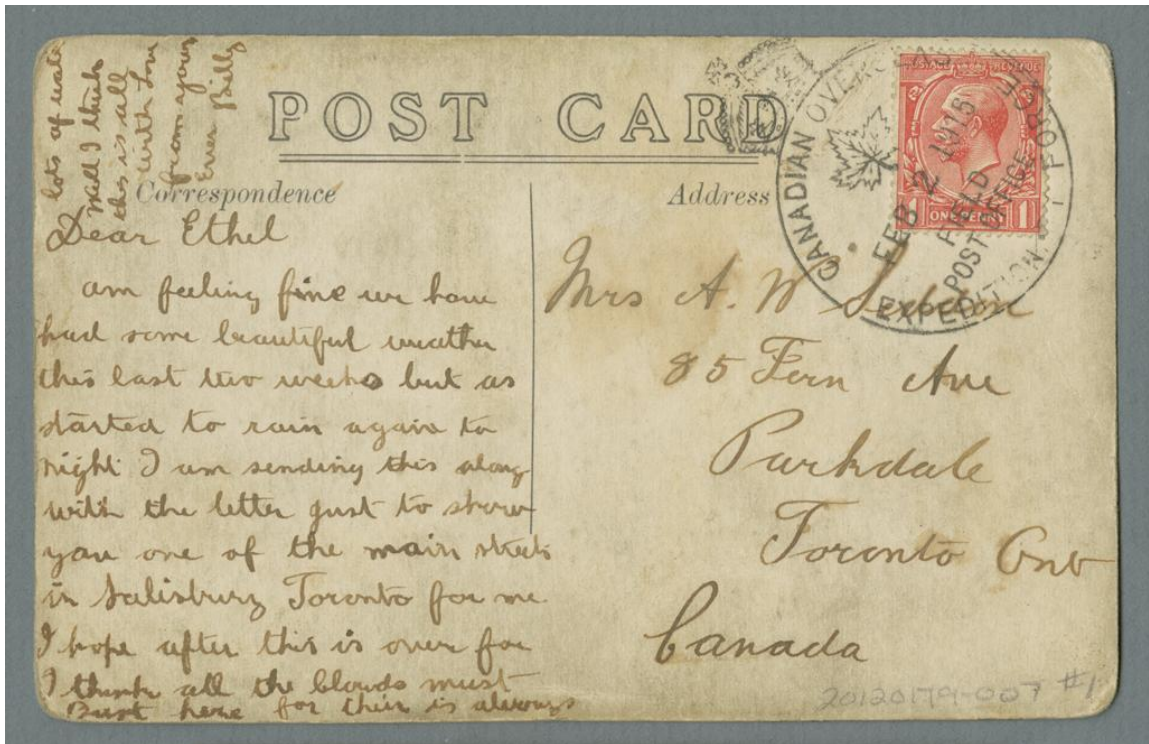 POST CARD
Correspondence
Address
Dear Ethel
am feeling fine we have
had some beautiful weather
this last two weeks but as
started to rain again to
night I am sending this along
with the letter just to show
you one of the main streets
in Salisbury Toronto for me
I hope after this is over for
I think all the clouds must
Bust here for their is always
lots of
Well I think
this is all
with Love
from yours
Ever Billy
Mrs A. W
85 Fern Ave
Parkdale
Toronto Ont
Canada
CANADIAN OVERSEAS EXPEDITION. FORCE
FEB 2 15
FIELD
POST OFFICE
POSTAGE REVENUE
1 ONE PENNY 1
20120179-007 #1